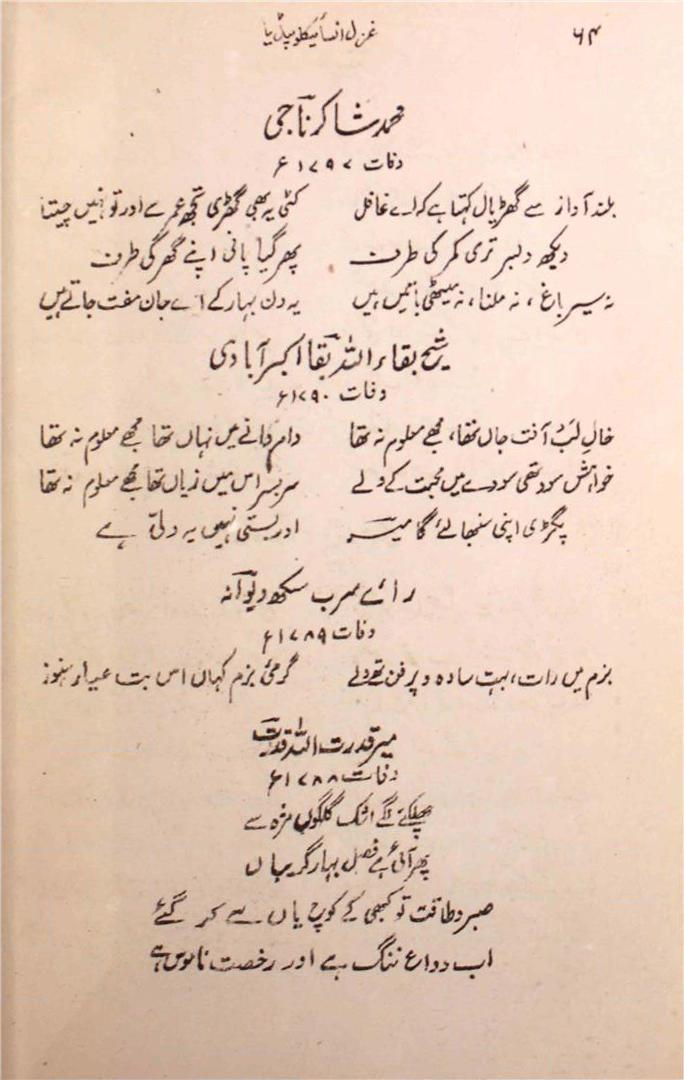 ۶۴ غزل انسائیکلوپیڈیا
محمد شاکر ناجی
وفات ۱۷۹۷ء
بلند آواز سے گھڑیال کہتا ہے کہ اے غافل کٹی یہ بھی گھڑی تجھ عمر سے اور تو نہیں چیتا
دیکھ دلبر تری کمر کی طرف پھر گیا پانی اپنے گھر کی طرف
نہ سیرِ باغ، نہ ملنا، نہ میٹھی باتیں ہیں یہ دن بہار کے اے جان مفت جاتے ہیں
شیخ بقاء اللہ بقا اکبر آبادی
وفات ۱۷۹۰ء
خالِ لب آفت جاں تھا، مجھے معلوم نہ تھا دام دانے میں نہاں تھا مجھے معلوم نہ تھا
خواہش سود تھی سودے میں محبت کے ولے سربسر اس میں زیاں تھا مجھے معلوم نہ تھا
پگڑی اپنی سنبھالئے گا میر اور بستی نہیں یہ دلّی ہے
رائے سرب سکھ دیوانہ
وفات ۱۷۸۹ء
بزم میں رات، بہت سادہ و پرفن تھے ولے گرمئ بزم کہاں اس بت عیار ہنوز
میر قدرت اللہ قدرت
وفات ۱۷۸۸ء
چھلکتے لگے اشک گلگوں مژہ سے
پھر آئی ہے فصل بہار گریباں
صبر و طاقت تو کبھی کے کوچ یاں سے کر گئے
اب وداع ننگ ہے اور رخصت ناموس ہے